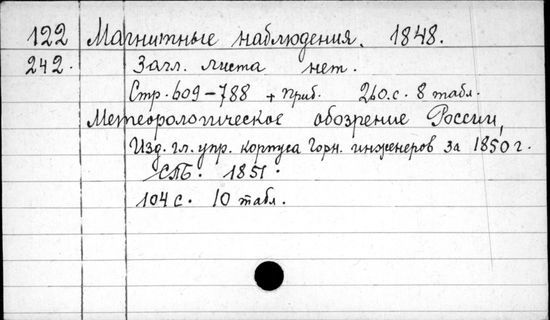 122 Магнитные наблюдения. 1848.
242. Загл. листа нет.
Стр. 609-788 + приб. 260.с. 8 табл.
Метеорологическое обозрение России,
Изд. гл. упр. корпуса Горн. инженеров за 1850 г.
СПБ. 1851.
104 с. 10 табл.